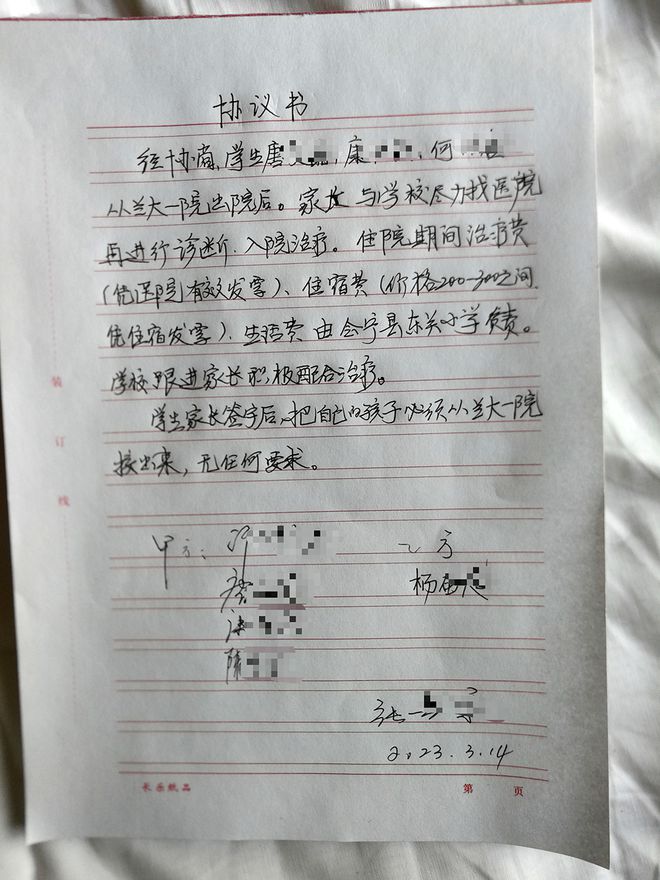 协议书
经协商,学生唐 ,康 ,何
从兰大一院出院后。家长与学校尽力找医院
再进行诊断、入院治疗。住院期间治疗费
(凭医院有效发票)、住宿费(价格200-300之间.
凭住宿发票)、生活费由会宁县东关小学负责。
学校跟进家长积极配合治疗。
学生家长签字后,把自己的孩子必须从兰大一院
接出来,无任何要求。
装
订
线
甲方: 乙方
杨
2023.3.14
长乐纸品 第 页